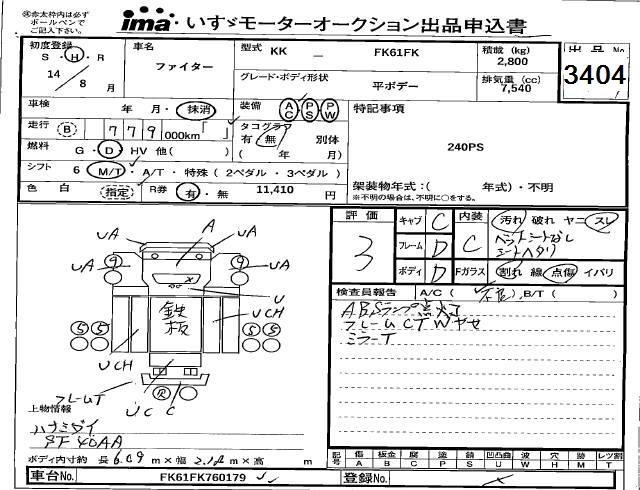 ※赤太枠内は必ず
ボールペンで
ご記入下さい。
ima いすゞモーターオークション出品申込書
初度登録
S・H・R
14 / 8 月
車名
ファイター
型式 KK － FK61FK
グレード・ボディ形状
平ボデー
積載 (kg)
2,800
排気量 (cc)
7,540
出品No
3404
車検 年 月・抹消
装備 AC PS PW
特記事項
240PS
走行 B 779,000km「 」
タコグラフ
有・無 別体
( 年 月)
燃料 G・D・HV 他( )
シフト 6 M/T・A/T・特殊 (2ペダル・3ペダル)
架装物年式:( 年式)・不明
※不明の場合は、不明に○をする。
色 白 指定 R券 有・無 11,410 円
評価
3
キャブ C
フレーム D
ボディ D
内装 C
汚れ 破れ ヤニ スレ
ベットシートなし
シートヘタリ
Fガラス 割れ 線 点傷 イバリ
検査員報告 A/C ( 不良 ), B/T ( )
ABSランプ点灯
フレームCTWヤセ
ミラーT
UA A UA
UA 9 9 UA
U
鉄板
UCH
5 5 5 5
UCH
R
フレームT
UC C
上物情報
ハナミダイ
9F40AA
ボディ内寸約 長 6.09 m×幅 2.12 m×高 m
記号 傷 A 板金 B 腐 C 塗 P 錆 S 凹凸曲 U 波 W 穴 H 跡 M レツ割 T
車台No. FK61FK760179
登録No.